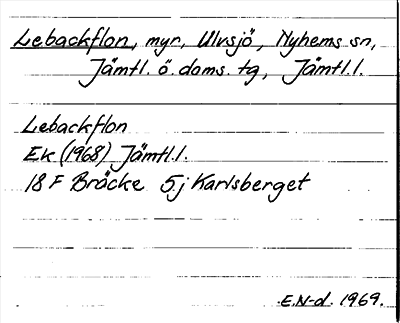 Lebackflon, myr, Ulvsjö, Nyhems sn,
Jämtl. ö. doms. tg, Jämtl. l.
Lebackflon
Ek (1968) Jämtl. l.
18 F Bräcke 5 j Karlsberget
E.N-d. 1969.